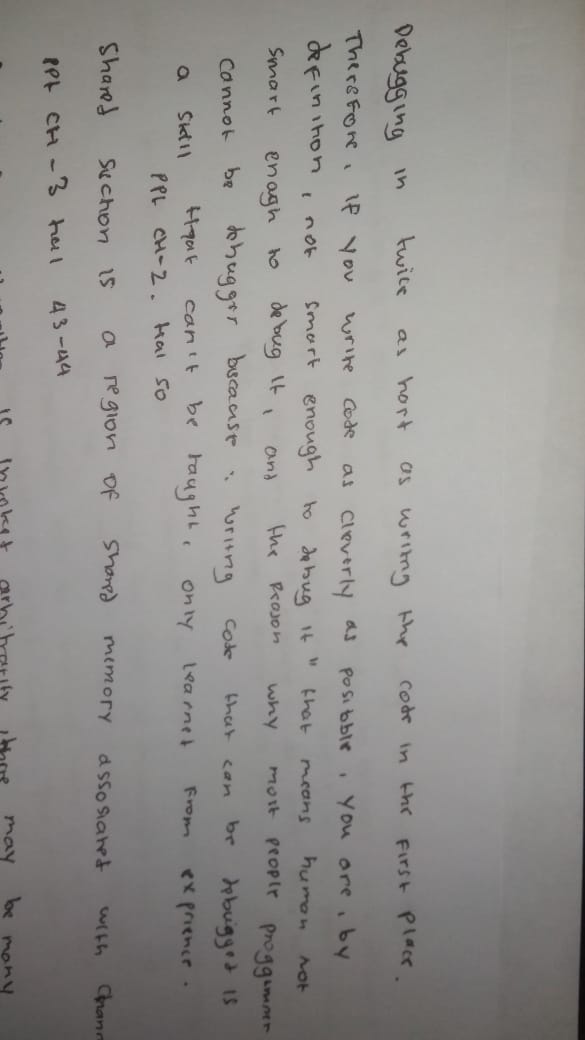 Debugging in twice as hart as writing the code in the first place.
Therefore, if you write code as cleverly as posibble, you are, by
definition, not smart enough to debug it" that means human not
smart enagh to debug it, and the reason why most people proggammer
cannot be debugger because: writing code that can be debugged is
a skill that can't be taught, only learnet from exprience.
PPt CH-2. hal 50
Shared section is a region of shared memory assosiated with chann
PPt CH-3 hal 43-44
is invoket arbitrarily there may be many